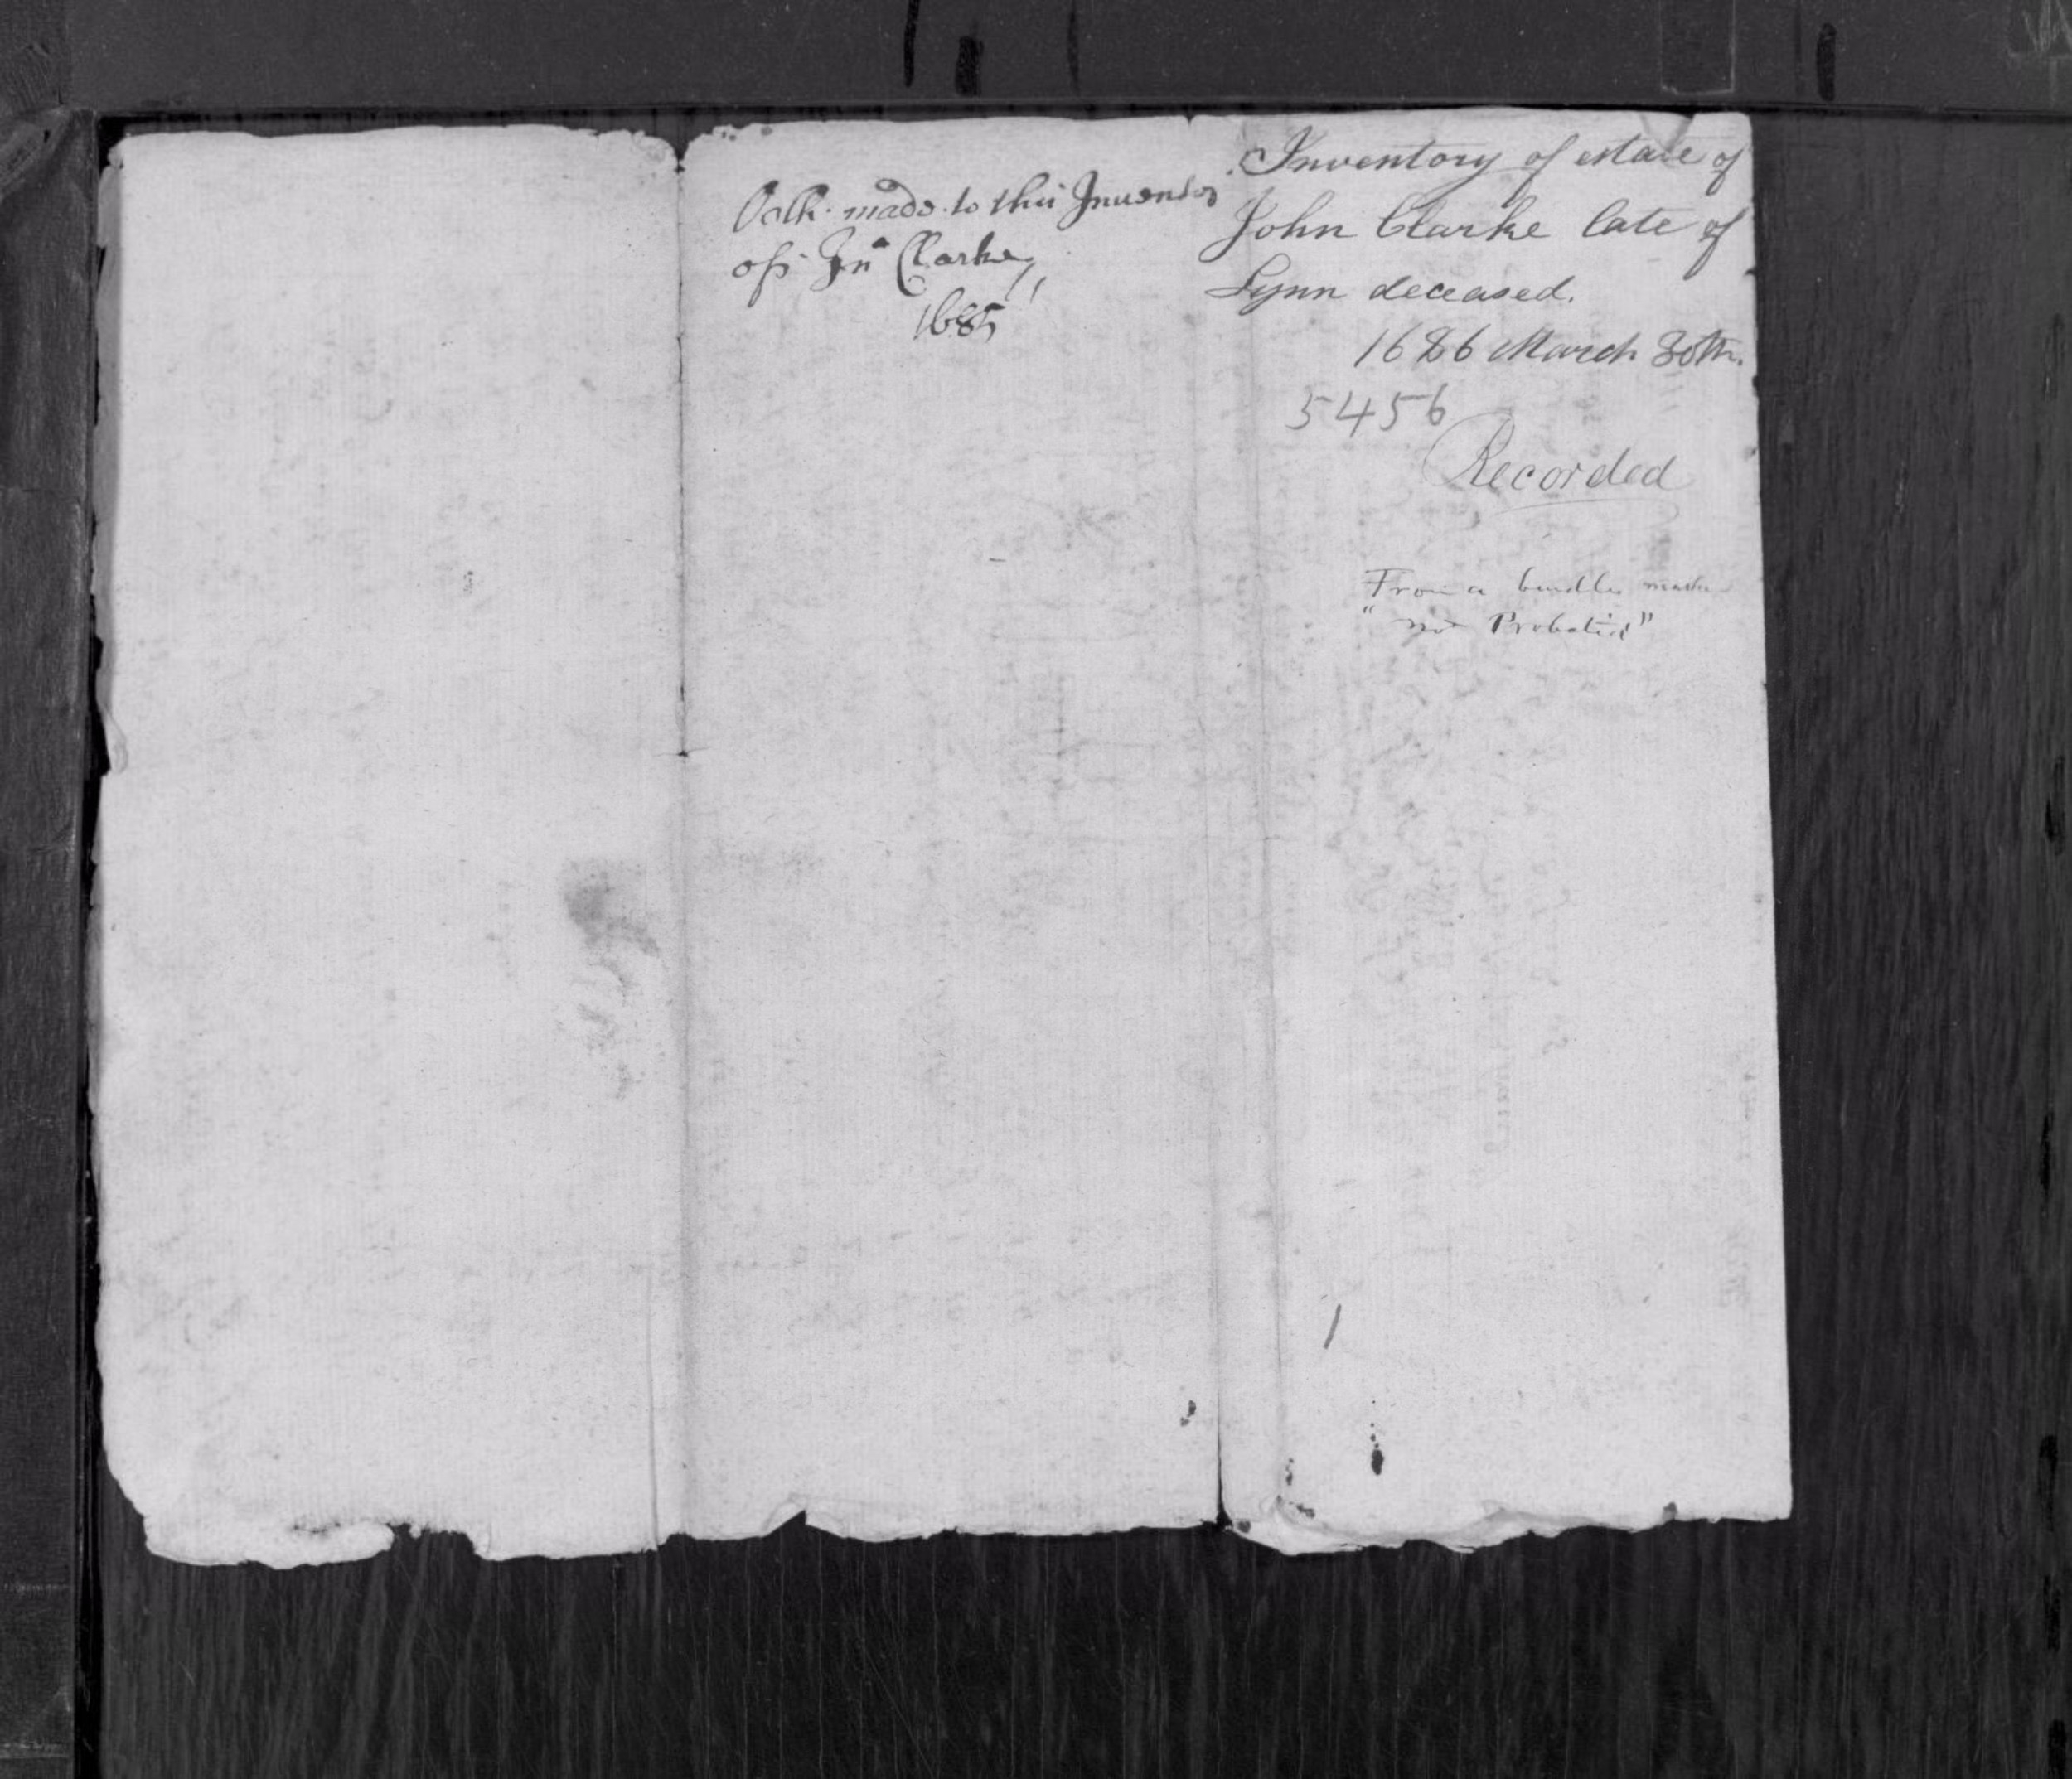 Oath made to this Inventory
off Jnº Clarke,
1685
Inventory of estate of
John Clarke late of
Lynn deceased.
1686 March 30th.
5456
Recorded
From a bundle marked
"not Probated"